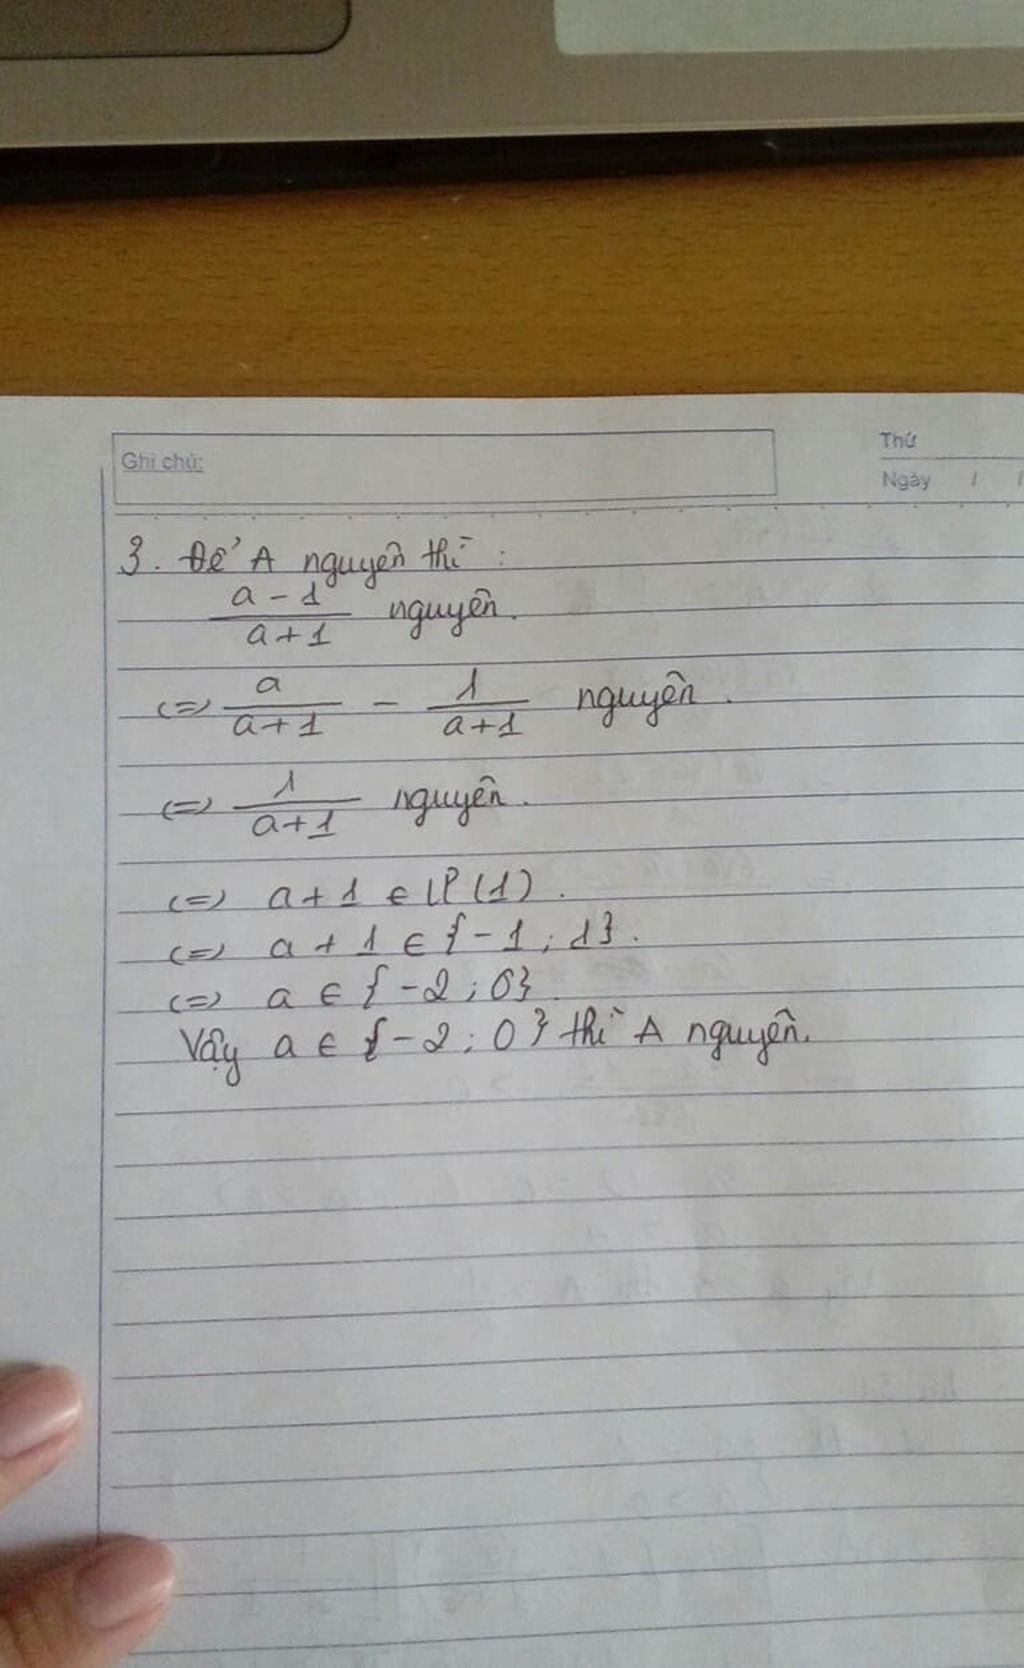 Ghi chú:
Thứ
Ngày / /
3. Để A nguyên thì :
a - 1 / a + 1 nguyên.
<=> a / a + 1 - 1 / a + 1 nguyên.
<=> 1 / a + 1 nguyên.
<=> a + 1 ∈ Ư (1).
<=> a + 1 ∈ {- 1 ; 1}.
<=> a ∈ {-2 ; 0}.
Vậy a ∈ {-2 ; 0} thì A nguyên.